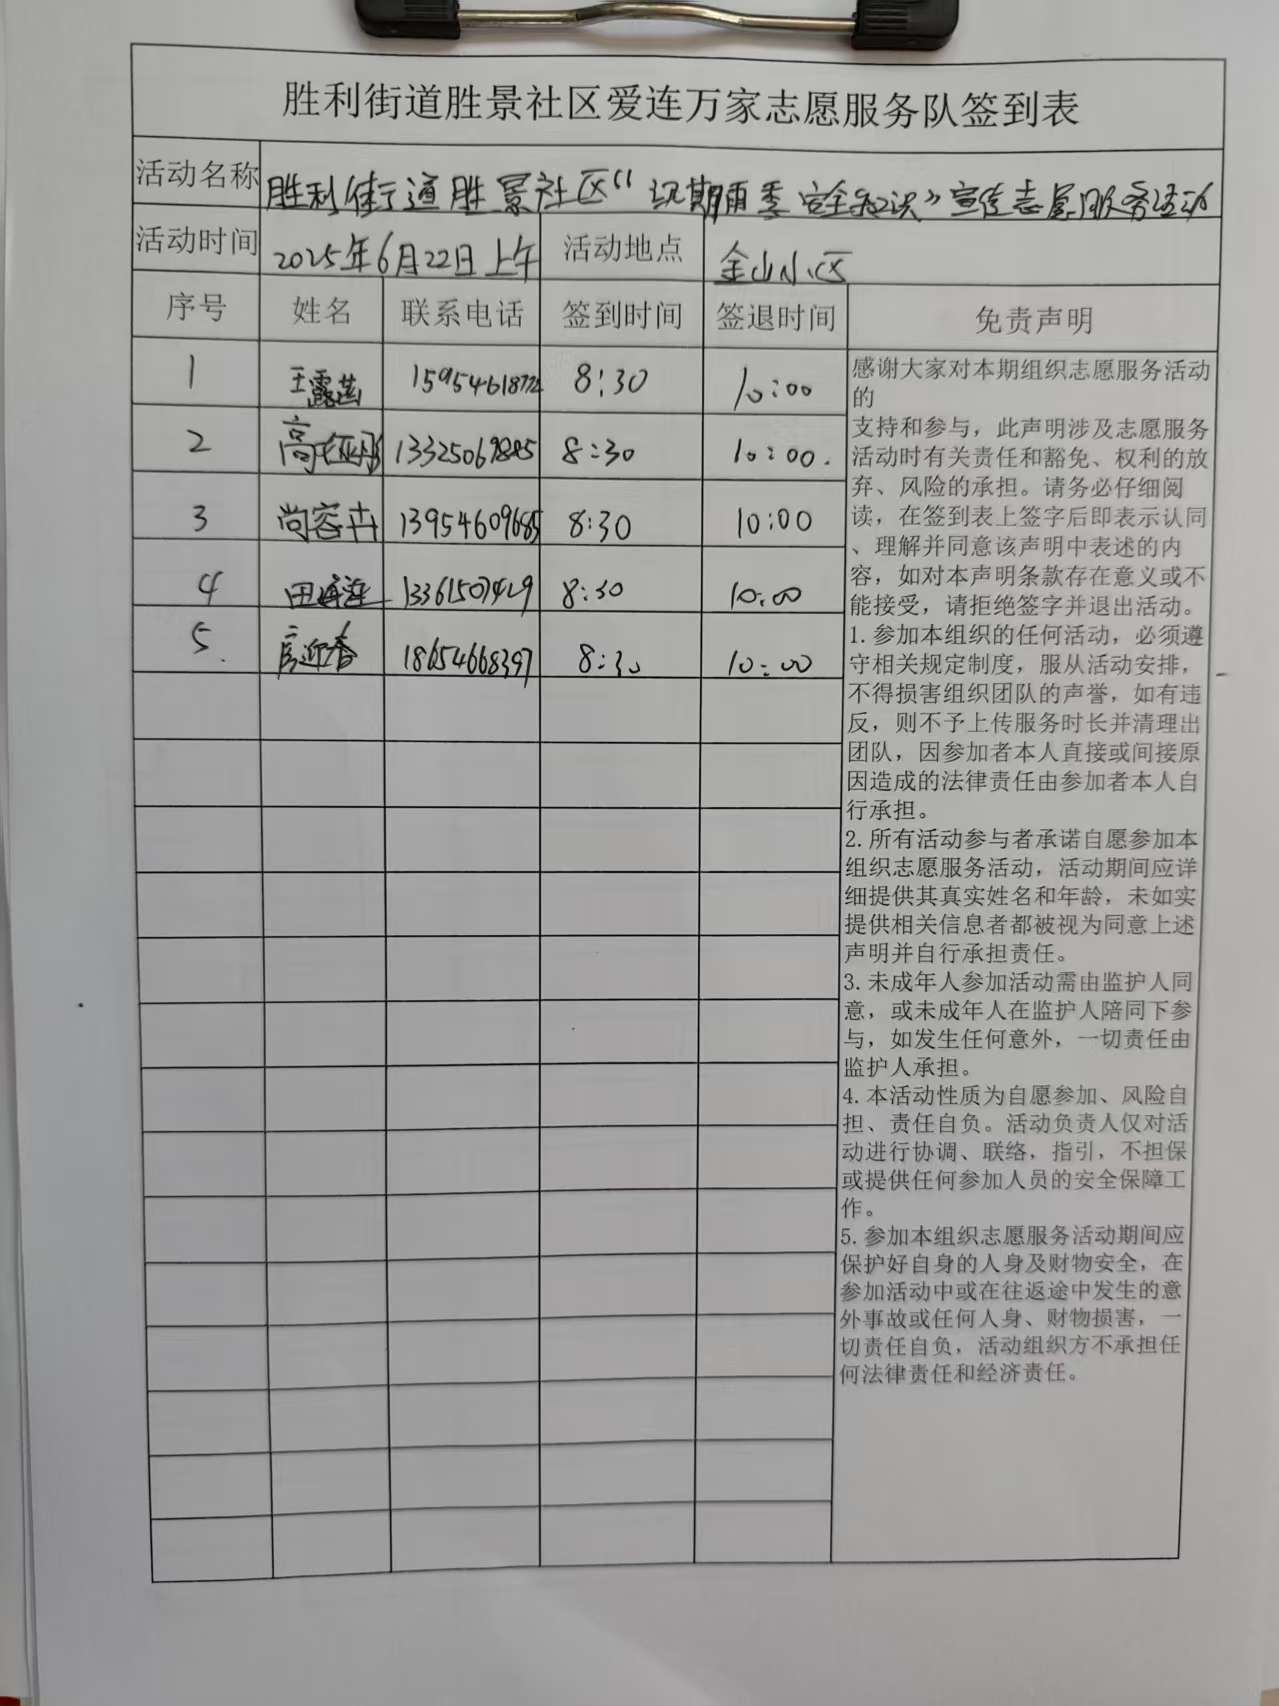 胜利街道胜景社区爱连万家志愿服务队签到表
活动名称 胜利街道胜景社区“汛期雨季安全知识”宣传志愿服务活动
活动时间 2025年6月22日上午 活动地点 金山小区
序号 姓名 联系电话 签到时间 签退时间 免责声明
1 王露茜 8:30 10:00
2 高 8:30 10:00.
3 尚容卉 13954609685 8:30 10:00
4 田 13361507429 8:30 10:00
5. 房迎春 18654668397 8:30 10:00
感谢大家对本期组织志愿服务活动
的
支持和参与，此声明涉及志愿服务
活动时有关责任和豁免、权利的放
弃、风险的承担。请务必仔细阅
读，在签到表上签字后即表示认同
、理解并同意该声明中表述的内
容，如对本声明条款存在意义或不
能接受，请拒绝签字并退出活动。
1.参加本组织的任何活动，必须遵
守相关规定制度，服从活动安排，
不得损害组织团队的声誉，如有违
反，则不予上传服务时长并清理出
团队，因参加者本人直接或间接原
因造成的法律责任由参加者本人自
行承担。
2.所有活动参与者承诺自愿参加本
组织志愿服务活动，活动期间应详
细提供其真实姓名和年龄，未如实
提供相关信息者都被视为同意上述
声明并自行承担责任。
3.未成年人参加活动需由监护人同
意，或未成年人在监护人陪同下参
与，如发生任何意外，一切责任由
监护人承担。
4.本活动性质为自愿参加、风险自
担、责任自负。活动负责人仅对活
动进行协调、联络，指引，不担保
或提供任何参加人员的安全保障工
作。
5.参加本组织志愿服务活动期间应
保护好自身的人身及财物安全，在
参加活动中或在往返途中发生的意
外事故或任何人身、财物损害，一
切责任自负，活动组织方不承担任
何法律责任和经济责任。